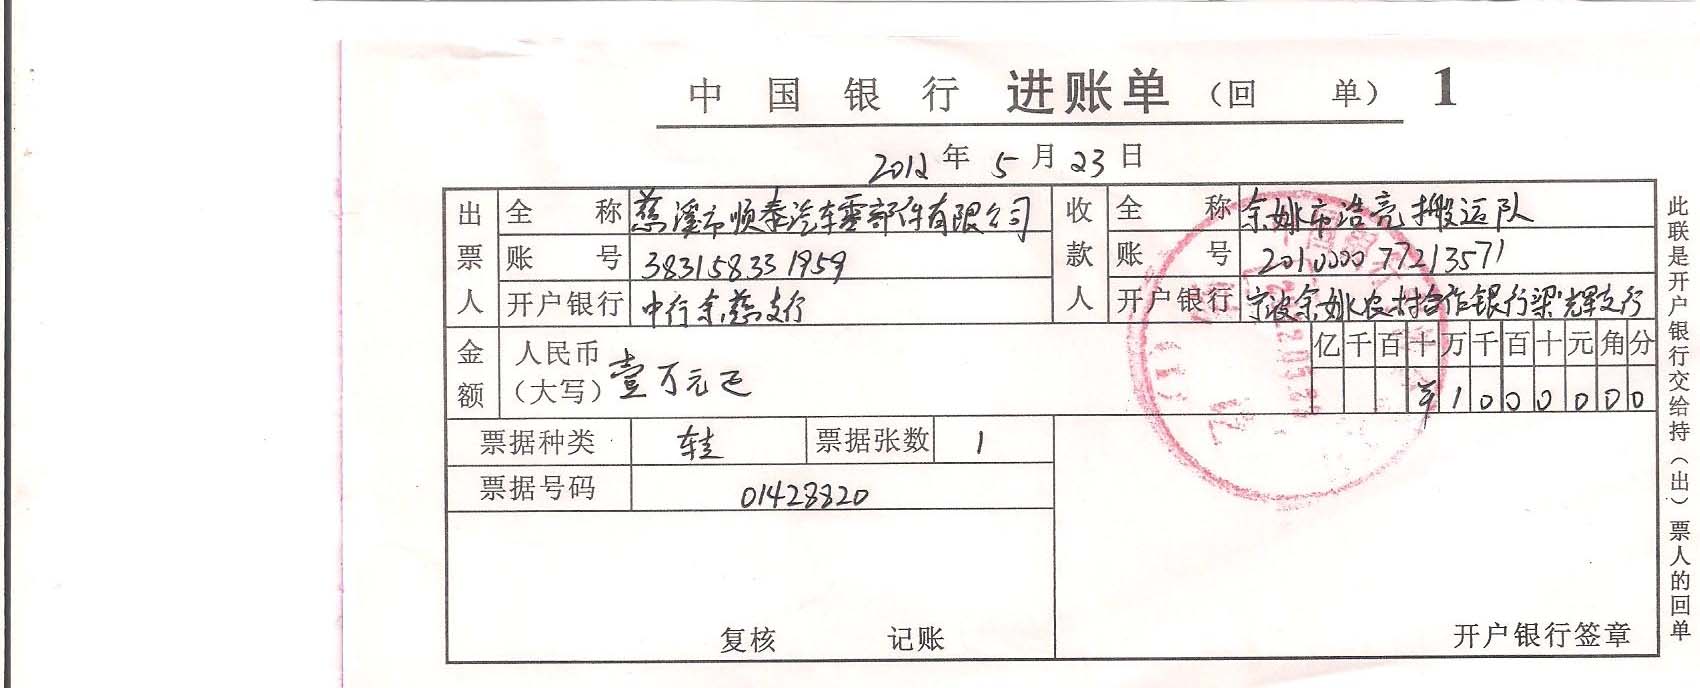 中国银行 进账单（回 单） 1
2012年5月23日
出票人 全称 慈溪市顺泰汽车零部件有限公司 收款人 全称 余姚市浩亮搬运队
账号 383158331959 账号 201000077213571
开户银行 中行余慈支行 开户银行 宁波余姚农村合作银行梁辉支行
金额 人民币（大写）壹万元正 亿千百十万千百十元角分
¥1000000
票据种类 转支 票据张数 1
票据号码 01428820
复核 记账 开户银行签章
此联是开户银行交给持（出）票人的回单